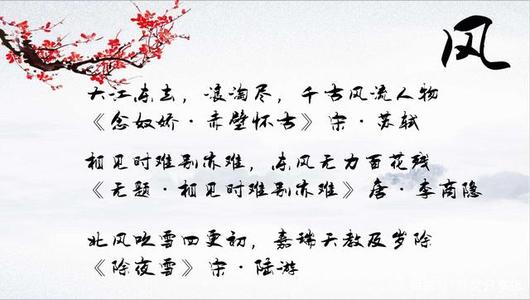 风
大江东去，浪淘尽，千古风流人物
《念奴娇·赤壁怀古》宋·苏轼
相见时难别亦难，东风无力百花残
《无题·相见时难别亦难》唐·李商隐
北风吹雪四更初，嘉瑞天教及岁除
《除夜雪》宋·陆游